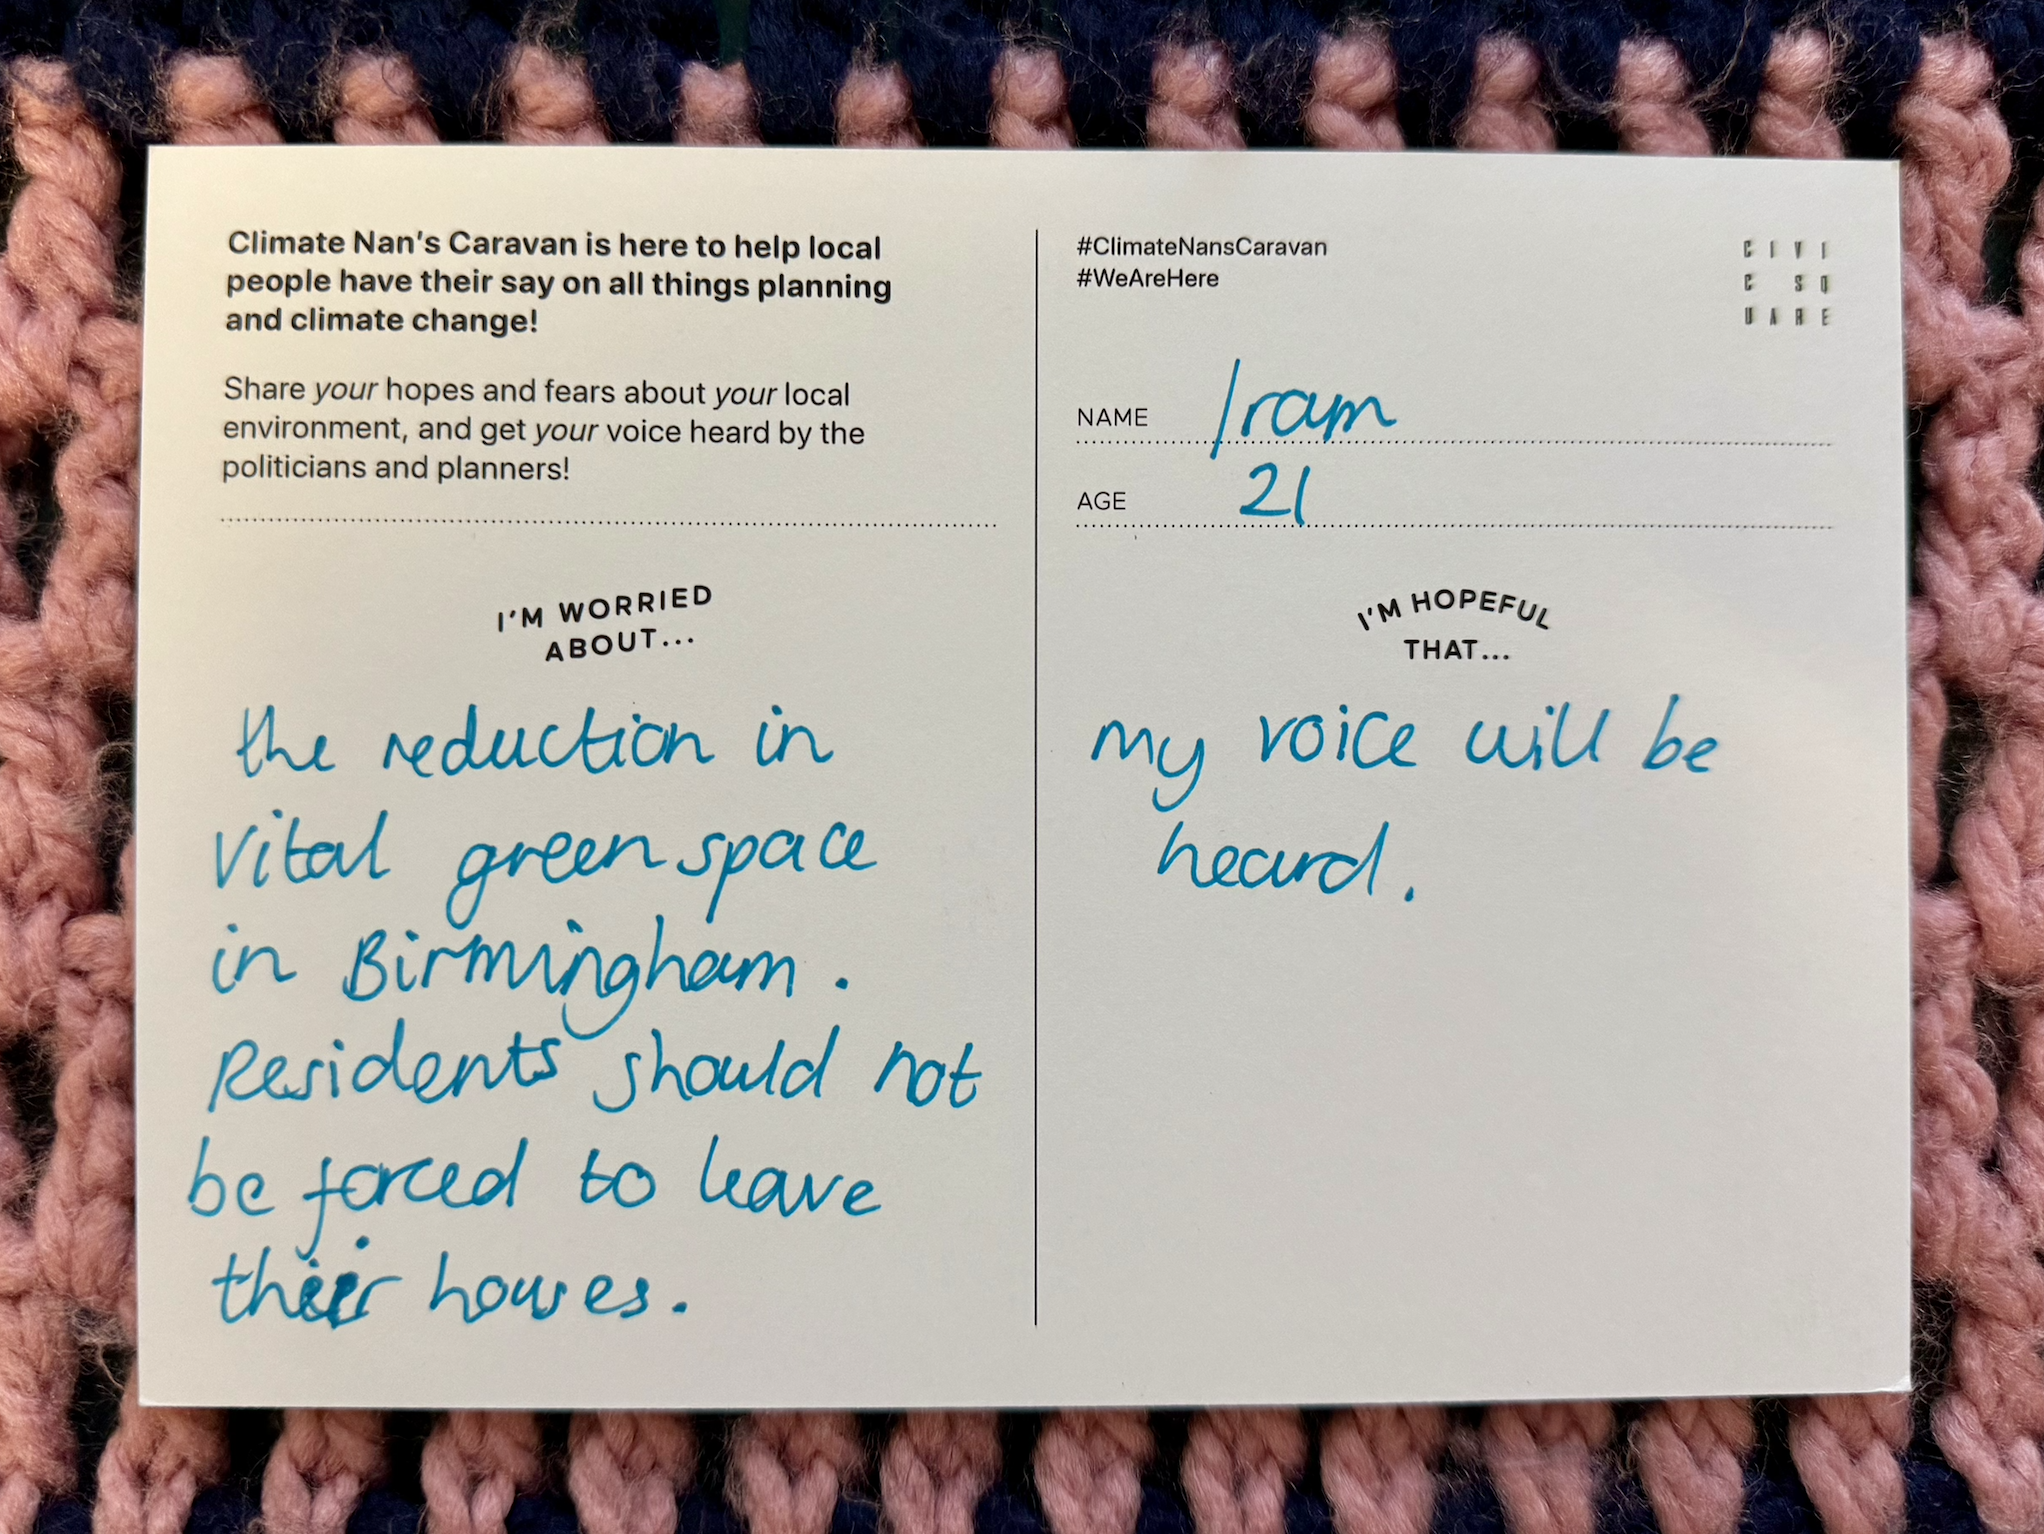 Climate Nan's Caravan is here to help local
people have their say on all things planning
and climate change!
Share your hopes and fears about your local
environment, and get your voice heard by the
politicians and planners!
I'M WORRIED
ABOUT...
the reduction in
vital green space
in Birmingham.
Residents should not
be forced to leave
their houses.
#ClimateNansCaravan
#WeAreHere
CIVI
C SQ
UARE
NAME Iram
AGE 21
I'M HOPEFUL
THAT...
my voice will be
heard.